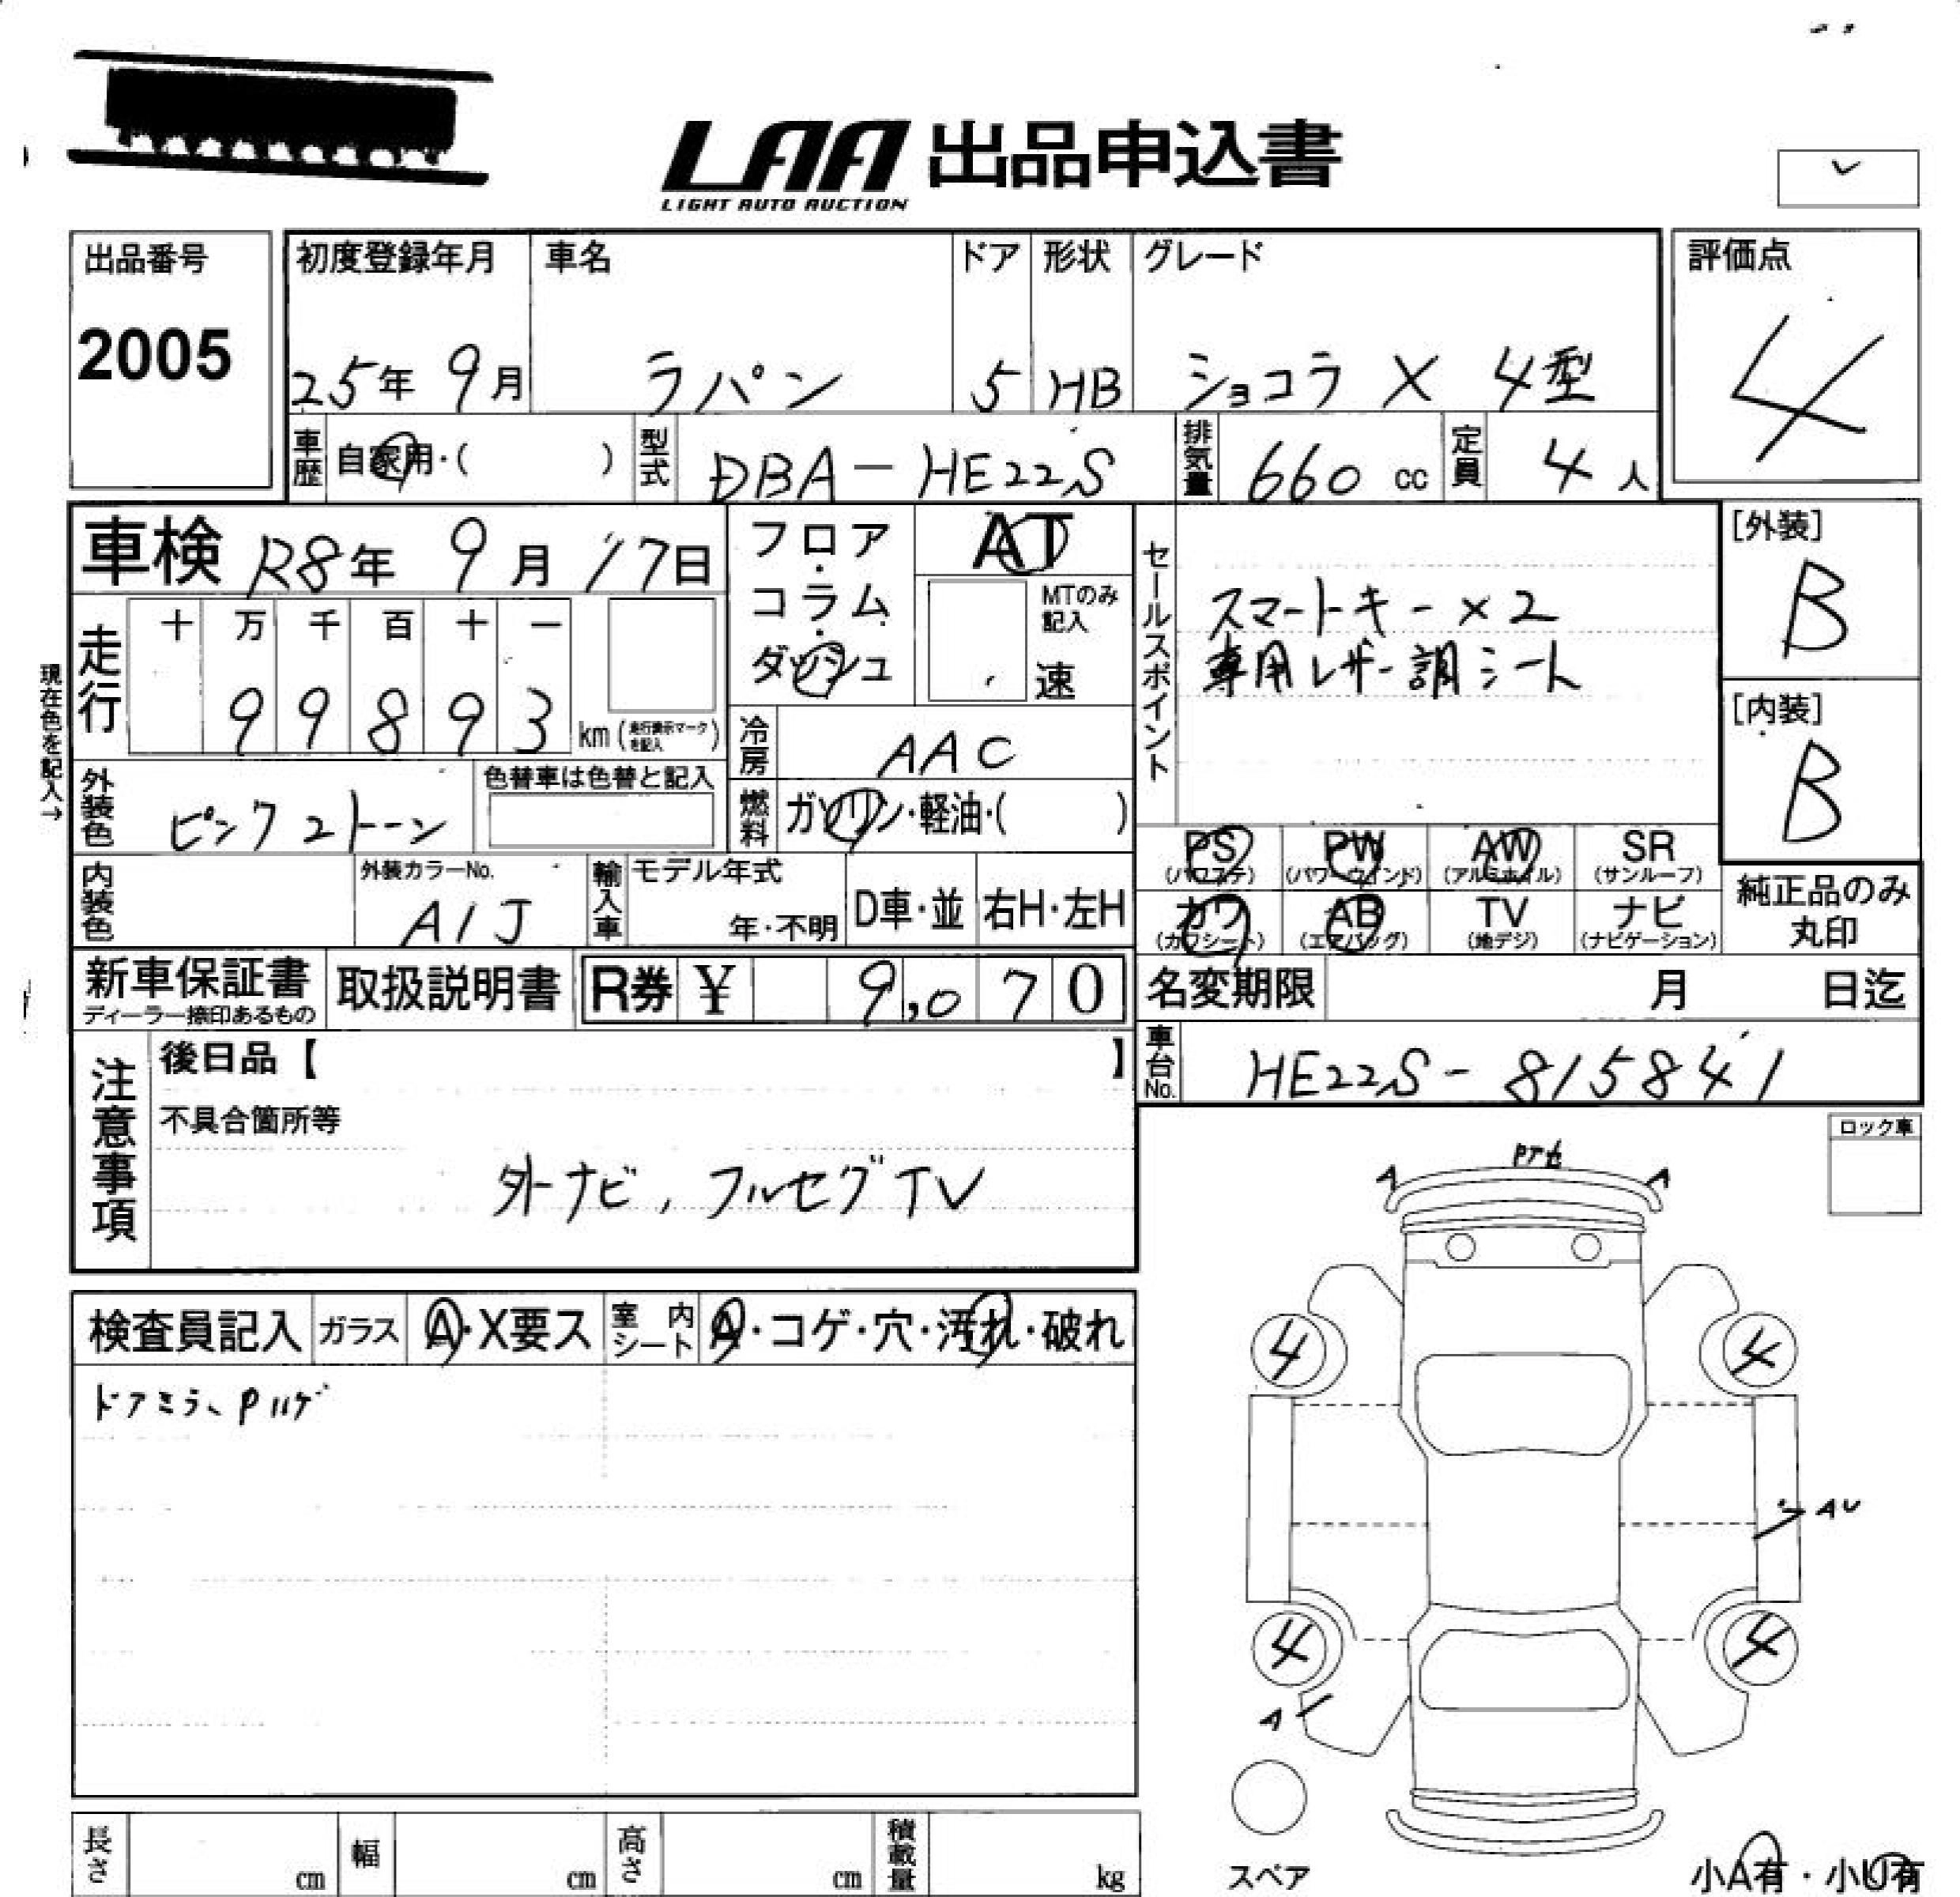 LAA 出品申込書
LIGHT AUTO AUCTION
出品番号
2005
初度登録年月
25年 9月
車名
ラパン
ドア
5
形状
HB
グレード
ショコラ X 4型
評価点
4
車歴 自家用・( )
型式 DBA-HE22S
排気量 660 cc
定員 4 人
車検 R8年 9月 17日
フロア・コラム・ダッシュ
AT
MTのみ記入
速
セールスポイント
スマートキー×2
専用レザー調シート
[外装]
B
[内装]
B
現在色を記入→
走行
十 万 千 百 十 一
9 9 8 9 3 km (走行表示マークを記入)
冷房 AAC
外装色 ピンク2トーン
色替車は色替と記入
燃料 ガソリン・軽油・( )
内装色
外装カラーNo.
A1J
輸入車 モデル年式
年・不明
D車・並
右H・左H
PS (パワステ)
PW (パワーウインド)
AW (アルミホイル)
SR (サンルーフ)
カワ (カワシート)
AB (エアバッグ)
TV (地デジ)
ナビ (ナビゲーション)
純正品のみ丸印
新車保証書
ディーラー捺印あるもの
取扱説明書
R券 ¥ 9,070
名変期限 月 日迄
車台No. HE22S-815841
注意事項
後日品【 】
不具合箇所等
外ナビ, フルセグTV
ロック車
検査員記入
ガラス A・X要ス
室内シート A・コゲ・穴・汚れ・破れ
ドアミラーPハゲ
A
A
4
4
AU
4
4
A
スペア
小A有・小U有
長さ cm
幅 cm
高さ cm
積載量 kg